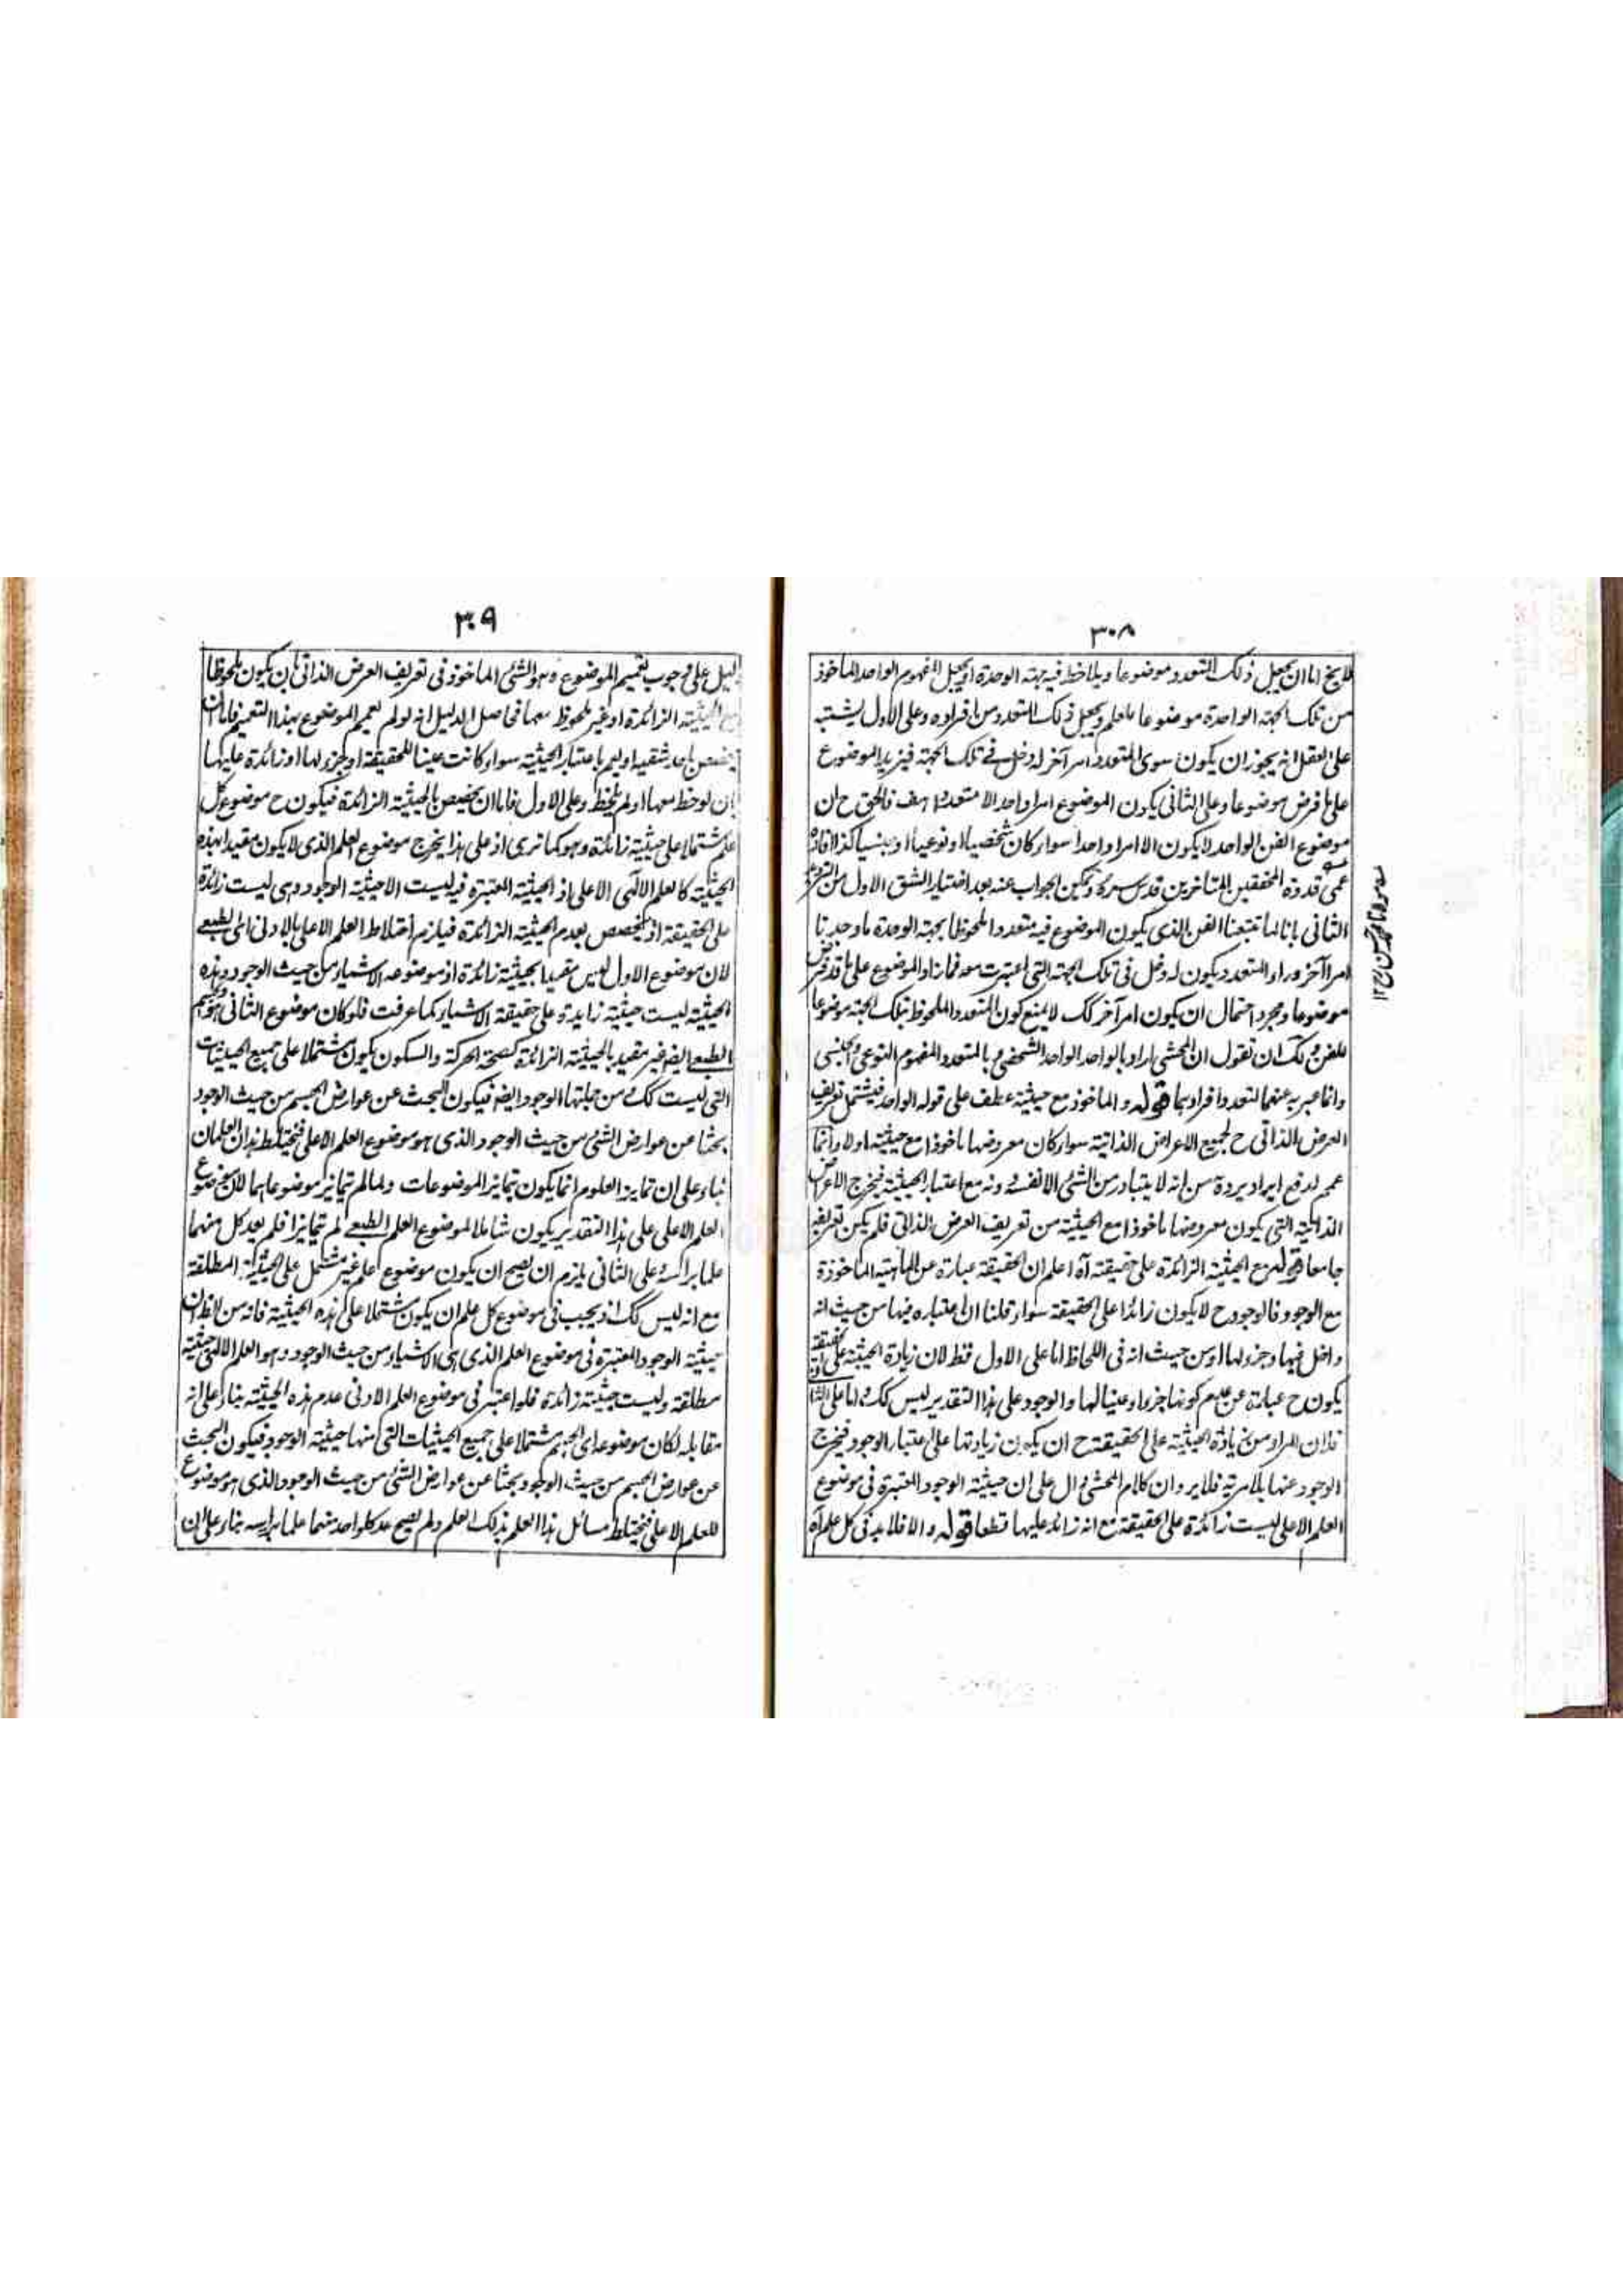 ٣٠٨
اما ان يجعل ذلك المتعدد موضوعا ويلاحظ فيه جهة الوحدة او يجعل المفهوم الواحد الماخوذ
من تلك الجهة الواحدة موضوعا ما للعلم ويجعل ذلك المتعدد من افراده وعلى الاول يشتبه
على العقل انه يجوز ان يكون سوى المتعدد امر آخر له دخل في تلك الجهة فيزيد الموضوع
على ما فرض موضوعا وعلى الثاني يكون الموضوع امرا واحدا لا متعددا هف فالحق ح ان
موضوع الفن الواحد لا يكون الا امرا واحدا سواء كان شخصيا او نوعيا او جنسيا كذا افاده
عمى قدوة المحققين المتاخرين قدس سره ويمكن الجواب عنه بعد اختيار الشق الاول من
الثاني بانا لما تتبعنا الفن الذي يكون الموضوع فيه متعددا ملحوظا بجهة الوحدة ما وجدنا
امرا آخر وراء المتعدد يكون له دخل في تلك الجهة التي اعتبرت معه فما زاد الموضوع على ما قد فرض
موضوعا ومجرد احتمال ان يكون امر آخر كك لا يمنع كون المتعدد الملحوظ بتلك الجهة موضوعا
للفن ولك ان تقول ان المحشي اراد بالواحد الواحد الشخصي وبالمتعدد المفهوم النوعي والجنسي
وانما عبر به عنهما لتعدد افرادهما قوله والماخوذ مع حيثية عطف على قوله الواحد فيشتمل تعريف
العرض الذاتي ح لجميع الاعراض الذاتية سواء كان معروضها ماخوذا مع حيثية اولا وانما
عمم لدفع ايراد يرد من انه لا يتبادر من الشئ الا نفسه دونه مع اعتبار الحيثية فيخرج الاعراض
الذاتية التي يكون معروضها ماخوذا مع الحيثية من تعريف العرض الذاتي فلم يكن تعريفه
جامعا قوله مع الحيثية الزائدة على حقيقته آه اعلم ان الحقيقة عبارة عن الماهية الماخوذة
مع الوجود فالوجود ح لا يكون زائدا على الحقيقة سواء قلنا ان اعتباره فيها من حيث انه
داخل فيها وجزء لها او من حيث انه في اللحاظ اما على الاول فظ لان زيادة الحيثية على حقيقة
يكون ح عبارة عن عدم كونها جزءا وعينا لها والوجود على هذا التقدير ليس كك واما على الثاني
فلان المراد من زيادة الحيثية على الحقيقة ح ان يكون زيادتها على اعتبار الوجود فيخرج
الوجود عنها بلا مرية فلا يرد ان كلام المحشي دال على ان حيثية الوجود المعتبرة في موضوع
العلم الاعلى ليست زائدة على الحقيقة مع انه زائد عليها قطعا قوله والا فلا بد في كل علم آه
٣٠٩
دليل على وجوب تعميم الموضوع وهو الشئ الماخوذ في تعريف العرض الذاتي بان يكون ملحوظا
مع الحيثية الزائدة او غير ملحوظ معها فى اصل الدليل انه لو لم يعمم الموضوع بهذا التعميم فاما ان
يخصص باحد شقيه او ليم باعتبار الحيثية سواء كانت عينا للحقيقة او جزء لها او زائدة عليها
ان لوحظ معها او لم يلحظ وعلى الاول فاما ان يخصص بالحيثية الزائدة فيكون ح موضوع كل
علم مشتملا على حيثية زائدة وهو كما ترى اذ على هذا يخرج موضوع العلم الذي لا يكون مقيدا بهذه
الحيثية كالعلم الالهى الاعلى اذ الحيثية المعتبرة فيه ليست الا حيثية الوجود وهى ليست زائدة
على الحقيقة او يخصص بعدم الحيثية الزائدة فيلزم اختلاط العلم الاعلى بالادنى اى الطبعي
لان موضوع الاول ليس مقيدا بحيثية زائدة اذ موضوعه الاشياء من حيث الوجود وهذه
الحيثية ليست حيثية زايدة على حقيقة الاشياء كما عرفت فلو كان موضوع الثاني وهو الجسم
الطبعي ايضا غير مقيد بالحيثية الزائدة كصحة الحركة والسكون يكون مشتملا على جميع الحيثيات
التي ليست كك ومن جملتها الوجود ايضا فيكون البحث عن عوارض الجسم من حيث الوجود
بحثا عن عوارض الشئ من حيث الوجود الذى هو موضوع العلم الاعلى فيختلط هذان العلمان
بناء على ان تمايز العلوم انما يكون بتمايز الموضوعات ولما لم يتمايز موضوعاهما لان موضوع
العلم الاعلى على هذا التقدير يكون شاملا لموضوع العلم الطبعي لم يتمايزا فلم يعد كل منهما
علما براسه وعلى الثانى يلزم ان يصح ان يكون موضوع علم غير مشتمل على الحيثية المطلقة
مع انه ليس كك اذ يجب فى موضوع كل علم ان يكون مشتملا على هذه الحيثية فانه من لاحظ ان
حيثية الوجود المعتبرة في موضوع العلم الذى هى الاشياء من حيث الوجود وهو العلم الالهى حيثية
مطلقة وليست حيثية زائدة فلو اعتبر فى موضوع العلم الادنى عدم هذه الحيثية بناء على انه
مقابله لكان موضوعه اى الجسم مشتملا على جميع الحيثيات التى منها حيثية الوجود فيكون البحث
عن عوارض الجسم من حيث الوجود بحثا عن عوارض الشئ من حيث الوجود الذى هو موضوع
للعلم الاعلى فيختلط مسائل هذا العلم بذلك العلم ولم يصح عد كلواحد منهما علما براسه بناء على ان